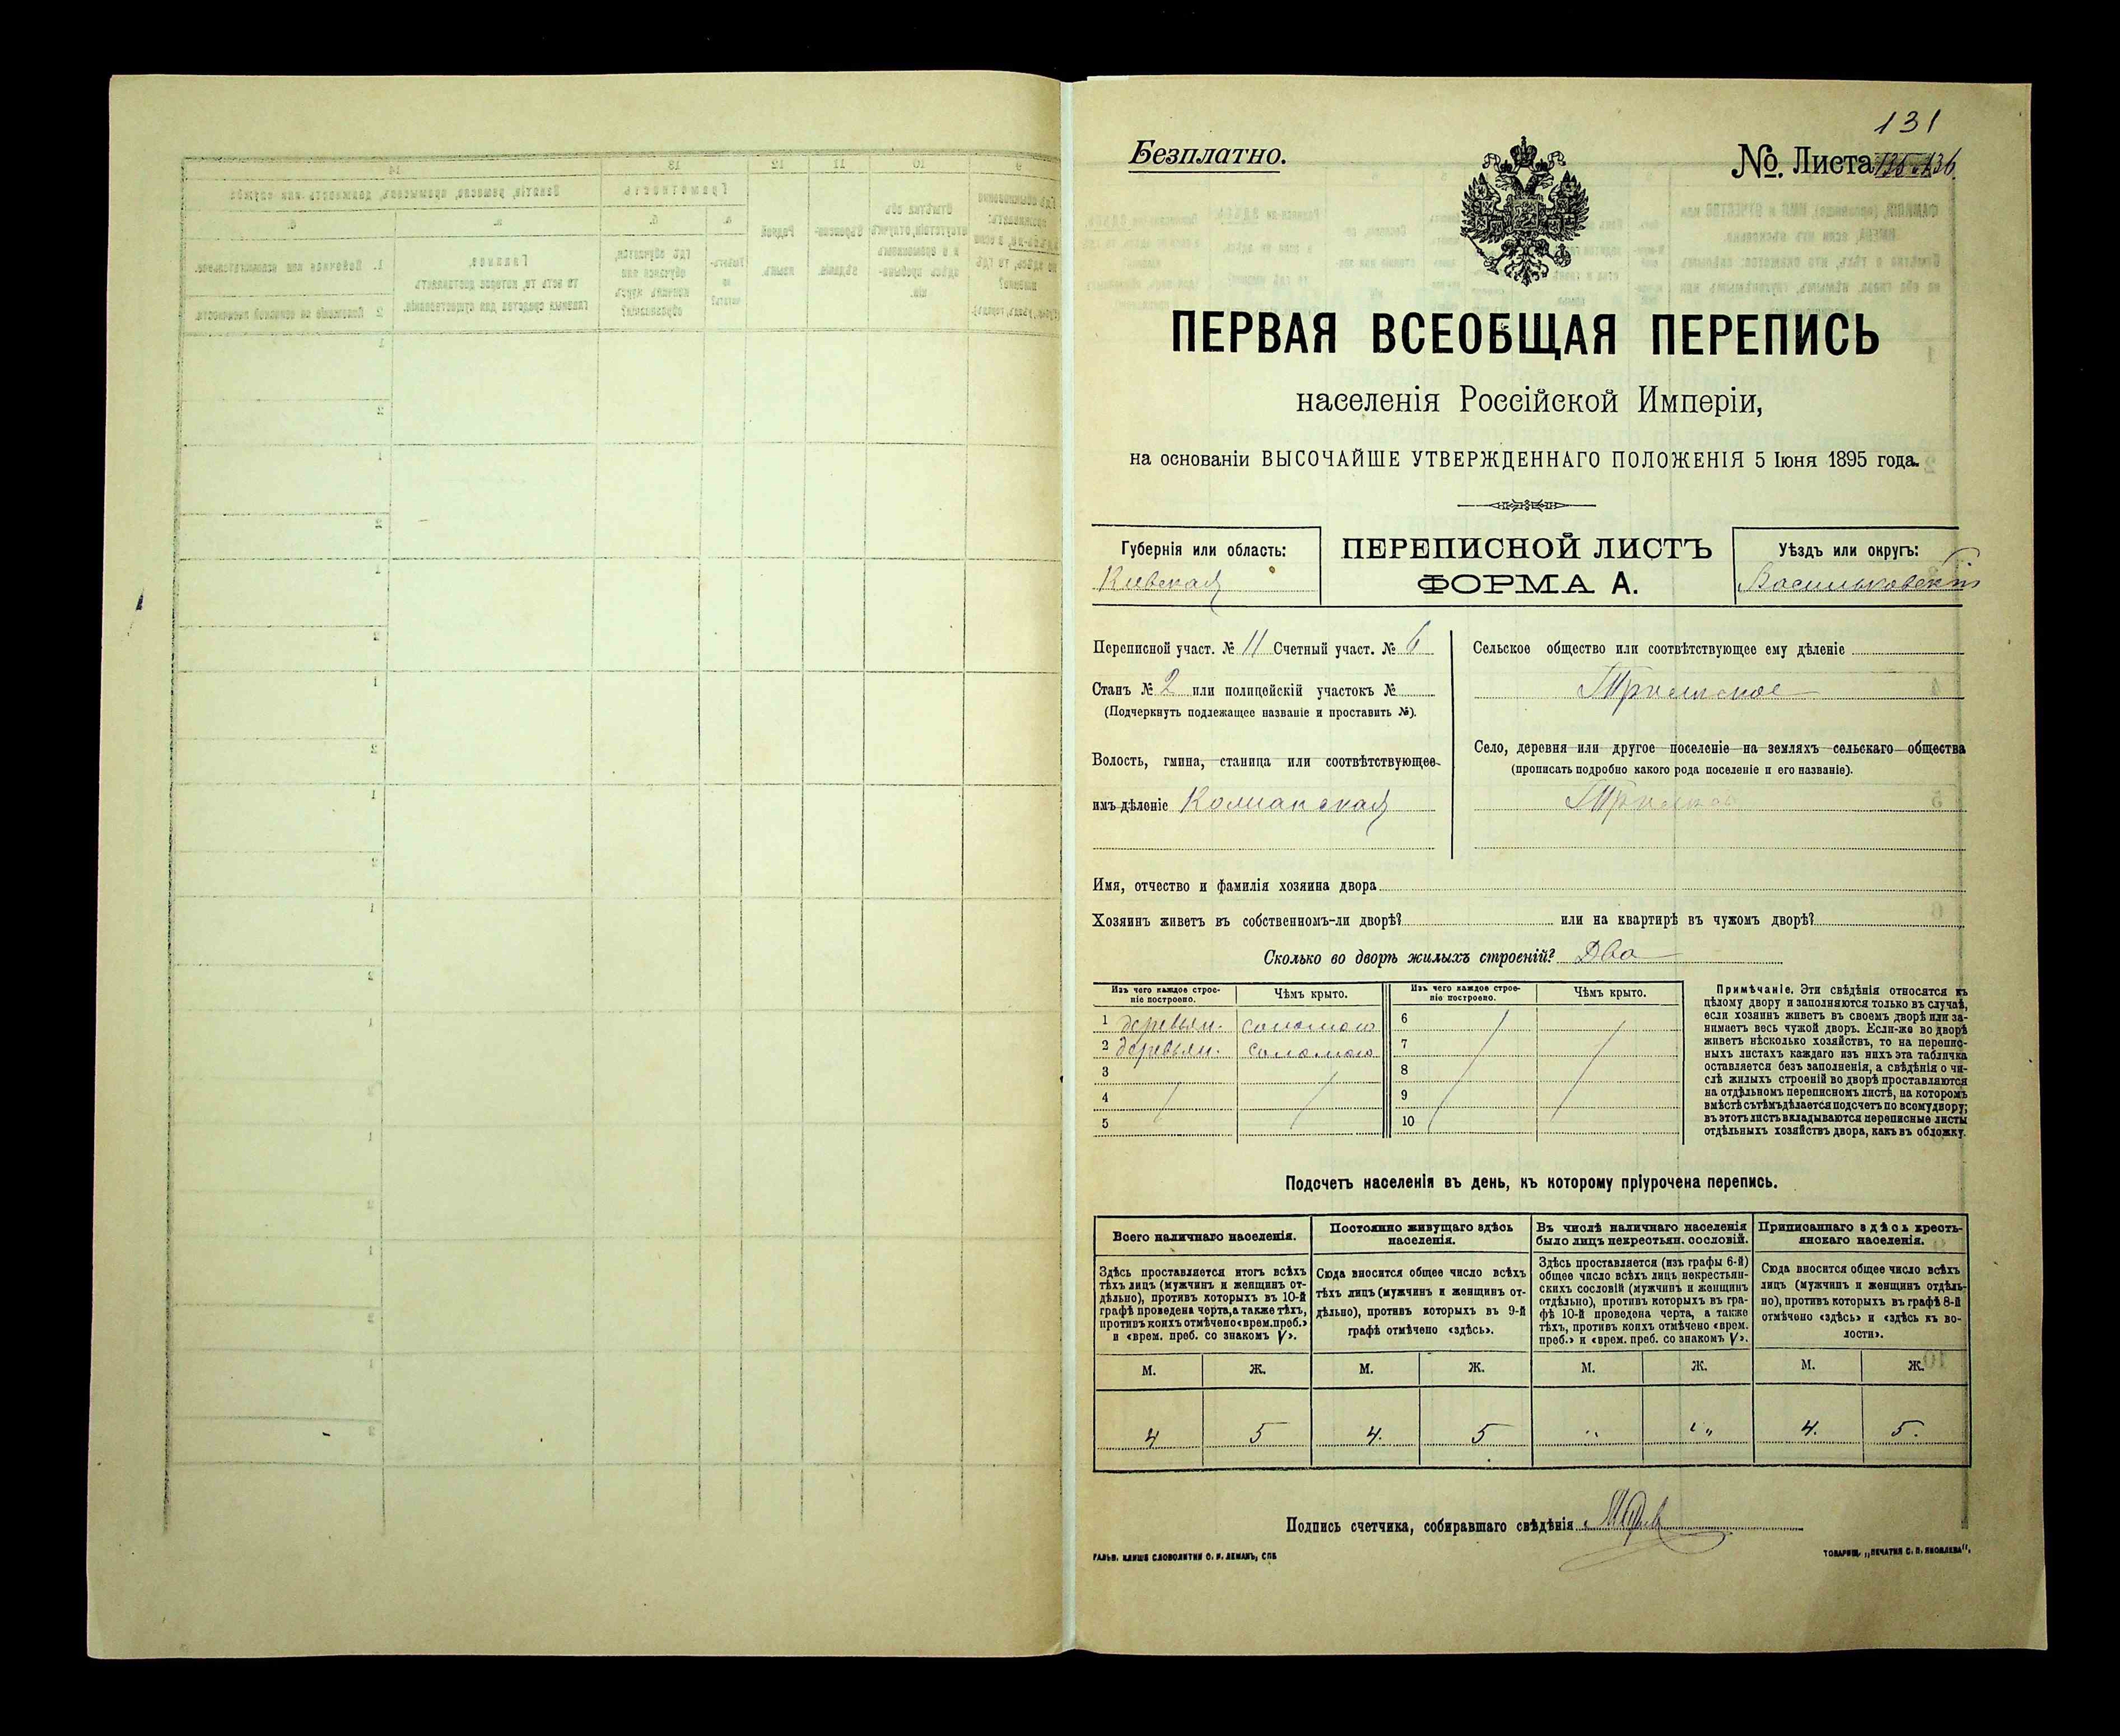 131
Безплатно.
№. Листа 136.
ПЕРВАЯ ВСЕОБЩАЯ ПЕРЕПИСЬ
населенія Россійской Имперіи,
на основаніи ВЫСОЧАЙШЕ УТВЕРЖДЕННАГО ПОЛОЖЕНІЯ 5 Іюня 1895 года.
Губернія или область:
Кіевская
ПЕРЕПИСНОЙ ЛИСТЪ
ФОРМА А.
Уѣздъ или округъ:
Васильковскій
Переписной участ. № 11 Счетный участ. № 6
Станъ № 2 или полицейскій участокъ №
(Подчеркнуть подлежащее названіе и проставить №).
Волость, гмина, станица или соотвѣтствующее
имъ дѣленіе
Сельское общество или соотвѣтствующее ему дѣленіе
Село, деревня или другое поселеніе на земляхъ сельскаго общества
(прописать подробно какого рода поселеніе и его названіе).
Имя, отчество и фамилія хозяина двора
Хозяинъ живетъ въ собственномъ-ли дворѣ? или на квартирѣ въ чужомъ дворѣ?
Сколько во дворѣ жилыхъ строеній? Два
Изъ чего каждое строе-
ніе построено.
Чѣмъ крыто.
Изъ чего каждое строе-
ніе построено.
Чѣмъ крыто.
1 деревян. соломою 6
2 деревян. соломою 7
3 8
4 9
5 10
Примѣчаніе. Эти свѣдѣнія относятся къ
цѣлому двору и заполняются только въ случаѣ,
если хозяинъ живетъ въ своемъ дворѣ или за-
нимаетъ весь чужой дворъ. Если-же во дворѣ
живетъ нѣсколько хозяйствъ, то на перепис-
ныхъ листахъ каждаго изъ нихъ эта табличка
оставляется безъ заполненія, а свѣдѣнія о чи-
слѣ жилыхъ строеній во дворѣ проставляются
на отдѣльномъ переписномъ листѣ, на которомъ
вмѣстѣ съ тѣмъ дѣлается подсчетъ по всему двору;
въ этотъ листъ вкладываются переписные листы
отдѣльныхъ хозяйствъ двора, какъ въ обложку.
Подсчетъ населенія въ день, къ которому пріурочена перепись.
Всего наличнаго населенія.
Здѣсь проставляется итогъ всѣхъ
тѣхъ лицъ (мужчинъ и женщинъ от-
дѣльно), противъ которыхъ въ 10-й
графѣ проведена черта, а также тѣхъ,
противъ коихъ отмѣчено «врем. преб.»
и «врем. преб. со знакомъ V».
Постоянно живущаго здѣсь
населенія.
Сюда вносится общее число всѣхъ
тѣхъ лицъ (мужчинъ и женщинъ от-
дѣльно), противъ которыхъ въ 9-й
графѣ отмѣчено «здѣсь».
Въ числѣ наличнаго населенія
было лицъ некрестьян. сословій.
Здѣсь проставляется (изъ графы 6-й)
общее число всѣхъ лицъ некрестьян-
скихъ сословій (мужчинъ и женщинъ
отдѣльно), противъ которыхъ въ гра-
фѣ 10-й проведена черта, а также
тѣхъ, противъ коихъ отмѣчено «врем.
преб.» и «врем. преб. со знакомъ V».
Приписаннаго здѣсь кресть-
янскаго населенія.
Сюда вносится общее число всѣхъ
лицъ (мужчинъ и женщинъ отдѣль-
но), противъ которыхъ въ графѣ 8-й
отмѣчено «здѣсь» и «здѣсь къ во-
лости».
М. Ж. М. Ж. М. Ж. М. Ж.
4 5 4. 5 " " 4. 5.
Подпись счетчика, собиравшаго свѣдѣнія
ГАЛЬВ. КЛИШЕ СЛОВОЛИТНИ О. И. ЛЕМАНЪ, СПБ
ТОВАРИЩ. „ПЕЧАТНЯ С. П. ЯКОВЛЕВА".